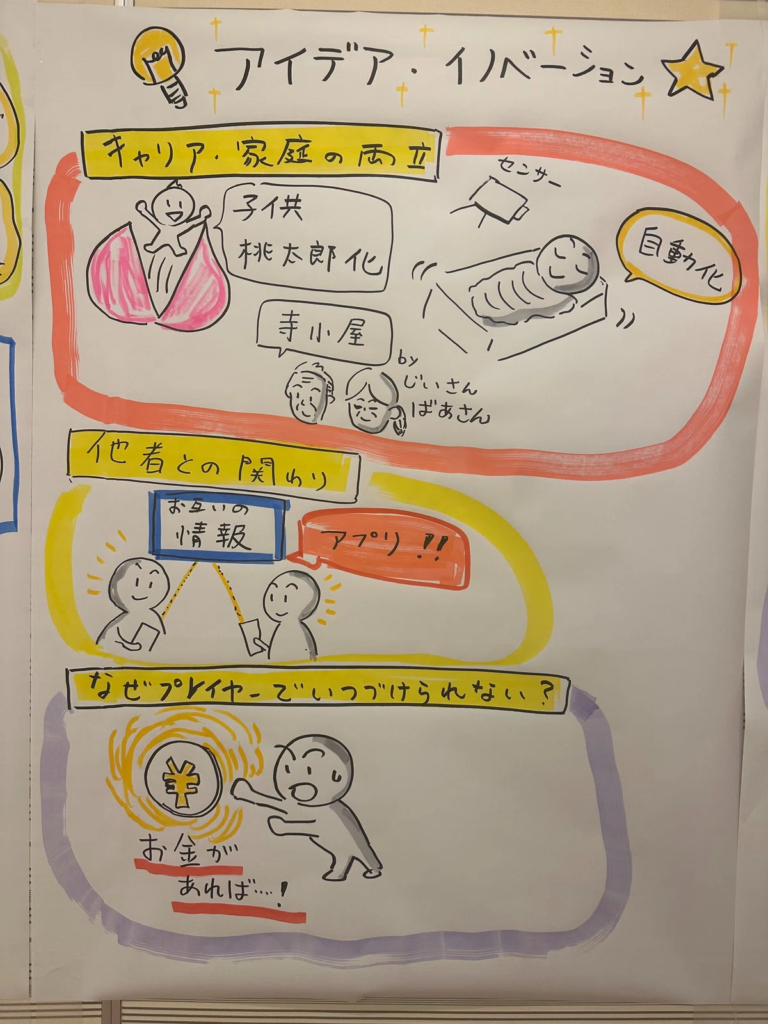 アイデア・イノベーション
キャリア・家庭の両立
センサー
子供
桃太郎化
自動化
寺小屋
by
じいさん
ばあさん
他者との関わり
お互いの
情報
アプリ!!
なぜプレイヤーでいつづけられない?
¥
お金が
あれば…!